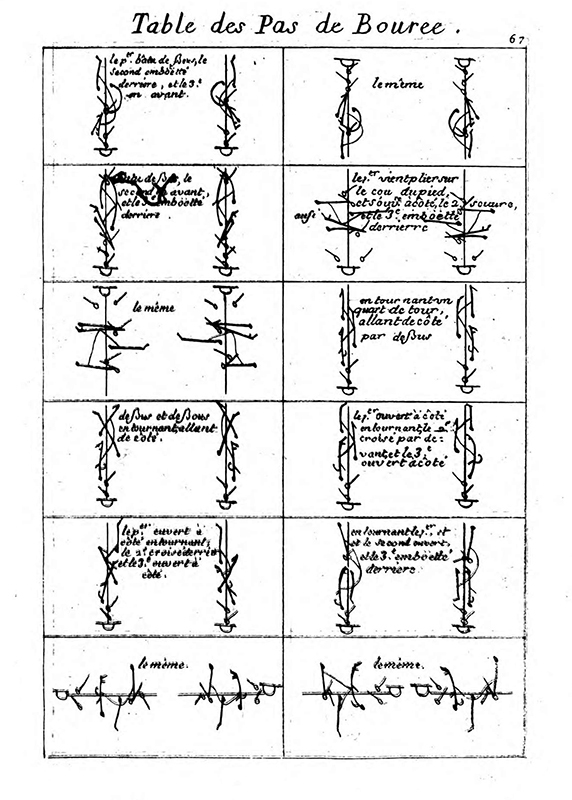 Table des Pas de Bouree.
67
le pr. batu dessous, le
second emboëtté
derriere, et le 3.e
en avant.
le même
batu dessous, le
second avant,
et le 3.e emboëtté
derriere.
le p.er vient plier sur
le cou du pied,
et s'ouvre a côté, le 2
et le 3.e emboëtté
derrierre
le même
en tournant un
quart de tour,
allant de côté
par dessus
dessus et dessous
en tournant, allant
de côté.
le p.er ouvert à côté
en tournant, le 2.e
croisé par de-
vant, et le 3.e
ouvert a côté
le p.er ouvert à
côté en tournant,
le 2.e croisé derriere
et le 3.e ouvert à
côté.
en tournant le p.er, et
et le second ouvert,
et le 3.e emboëtté
derriere
le même.
le même.